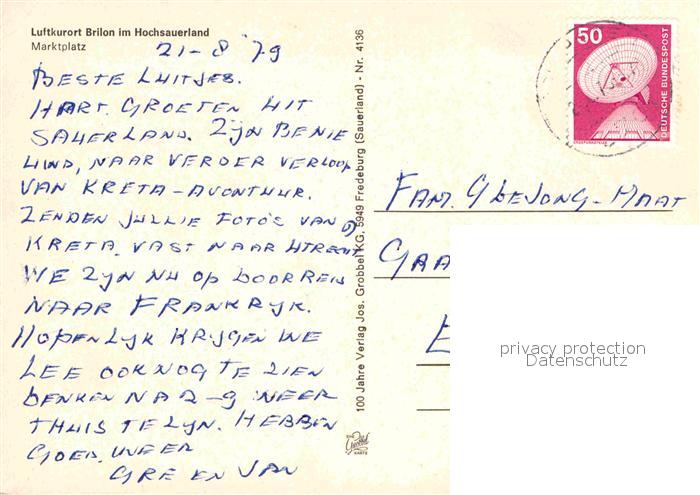 Luftkurort Brilon im Hochsauerland
Marktplatz
21-8 '79
BESTE LUITJES.
HART. GROETEN UIT
SAUERLAND. ZIJN BENIE
UWD, NAAR VERDER VERLOOP
VAN KRETA-AVONTUUR.
ZENDEN JULLIE FOTO'S VAN
KRETA, VAST NAAR UTRECHT
WE ZIJN NU OP DOORREIS
NAAR FRANKRIJK.
HOPENLIJK KRIJGEN WE
ZEE OOK NOG TE ZIEN
DENKEN NA 2-9 WEER
THUIS TE ZIJN. HEBBEN
GOED WEER
GRE EN JAN
100 Jahre Verlag Jos. Grobbel KG, 5949 Fredeburg (Sauerland) - Nr. 4136
50
DEUTSCHE BUNDESPOST
ERDEFUNKSTELLE
FAM. G DE JONG-MAAT
GRA
E
privacy protection
Datenschutz
Grobbel
KARTE